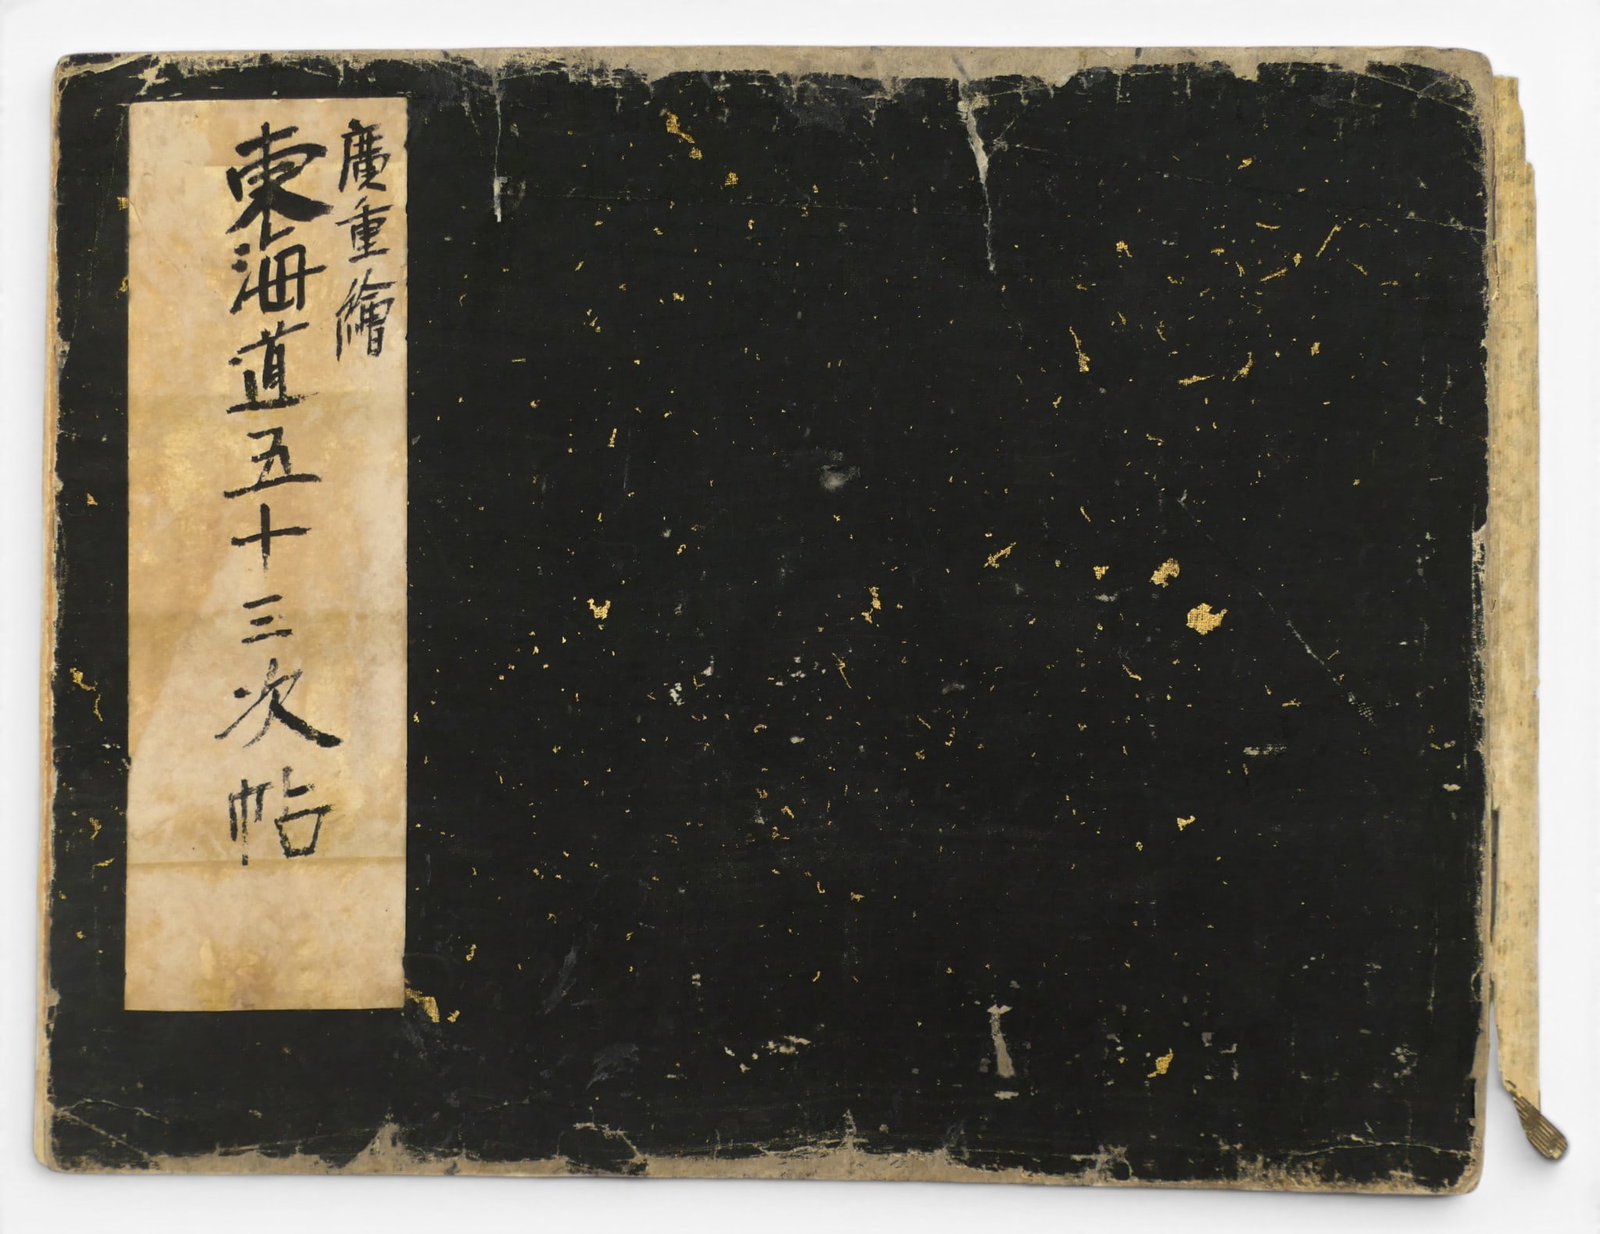 廣重繪
東海道五十三次帖